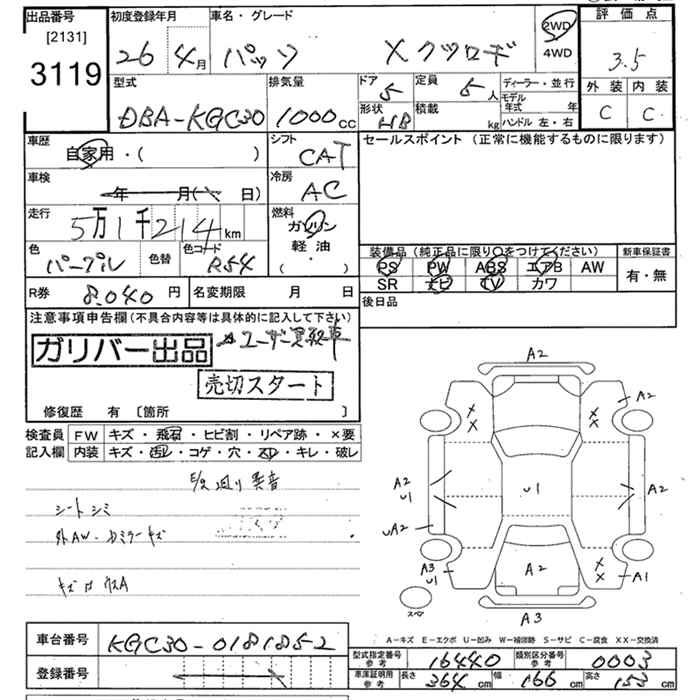 出品番号 初度登録年月 車名・グレード 2WD 評価点
[2131] 26 年 4月 パッソ Xクツロギ 4WD 3.5
3119 外装 内装
型式 排気量 ドア 5 定員 5人 ディーラー・並行 C C
DBA-KGC30 1000cc 形状 HB 積載 kg モデル年式 年
ハンドル 左・右
車歴 自家用・( ) シフト CAT セールスポイント (正常に機能するものに限ります)
車検 年 月( 日) 冷房 AC
走行 5万1千214km 燃料 ガソリン
軽油
( ・ )
色 パープル 色替 色コード R54
装備品 (純正品に限り○をつけてください) 新車保証書
PS PW ABS エアB AW 有・無
SR ナビ TV カワ
R券 8,040円 名変期限 月 日 後日品
注意事項申告欄(不具合内容等は具体的に記入して下さい)
ガリバー出品 ユーザー買取車
売切スタート
修復歴 有 [箇所 ]
検査員 FW キズ・飛石・ヒビ割・リペア跡・×要
記入欄 内装 キズ・汚レ・コゲ・穴・スレ・キレ・破レ
異音
シートシミ
外AW・Dミラーキズ
A2
A2
A2
U1
U1
A2
UA2
A3
U1
A2
A1
スペア
A3
A-キズ E-エクボ U-凹み W-補修跡 S-サビ C-腐食 XX-交換済
車台番号 KGC30-0181852
型式指定番号 参考 16440 類別区分番号 参考 0003
登録番号
車庫証明用 参考 長さ 364cm 幅 166cm 高さ 153cm